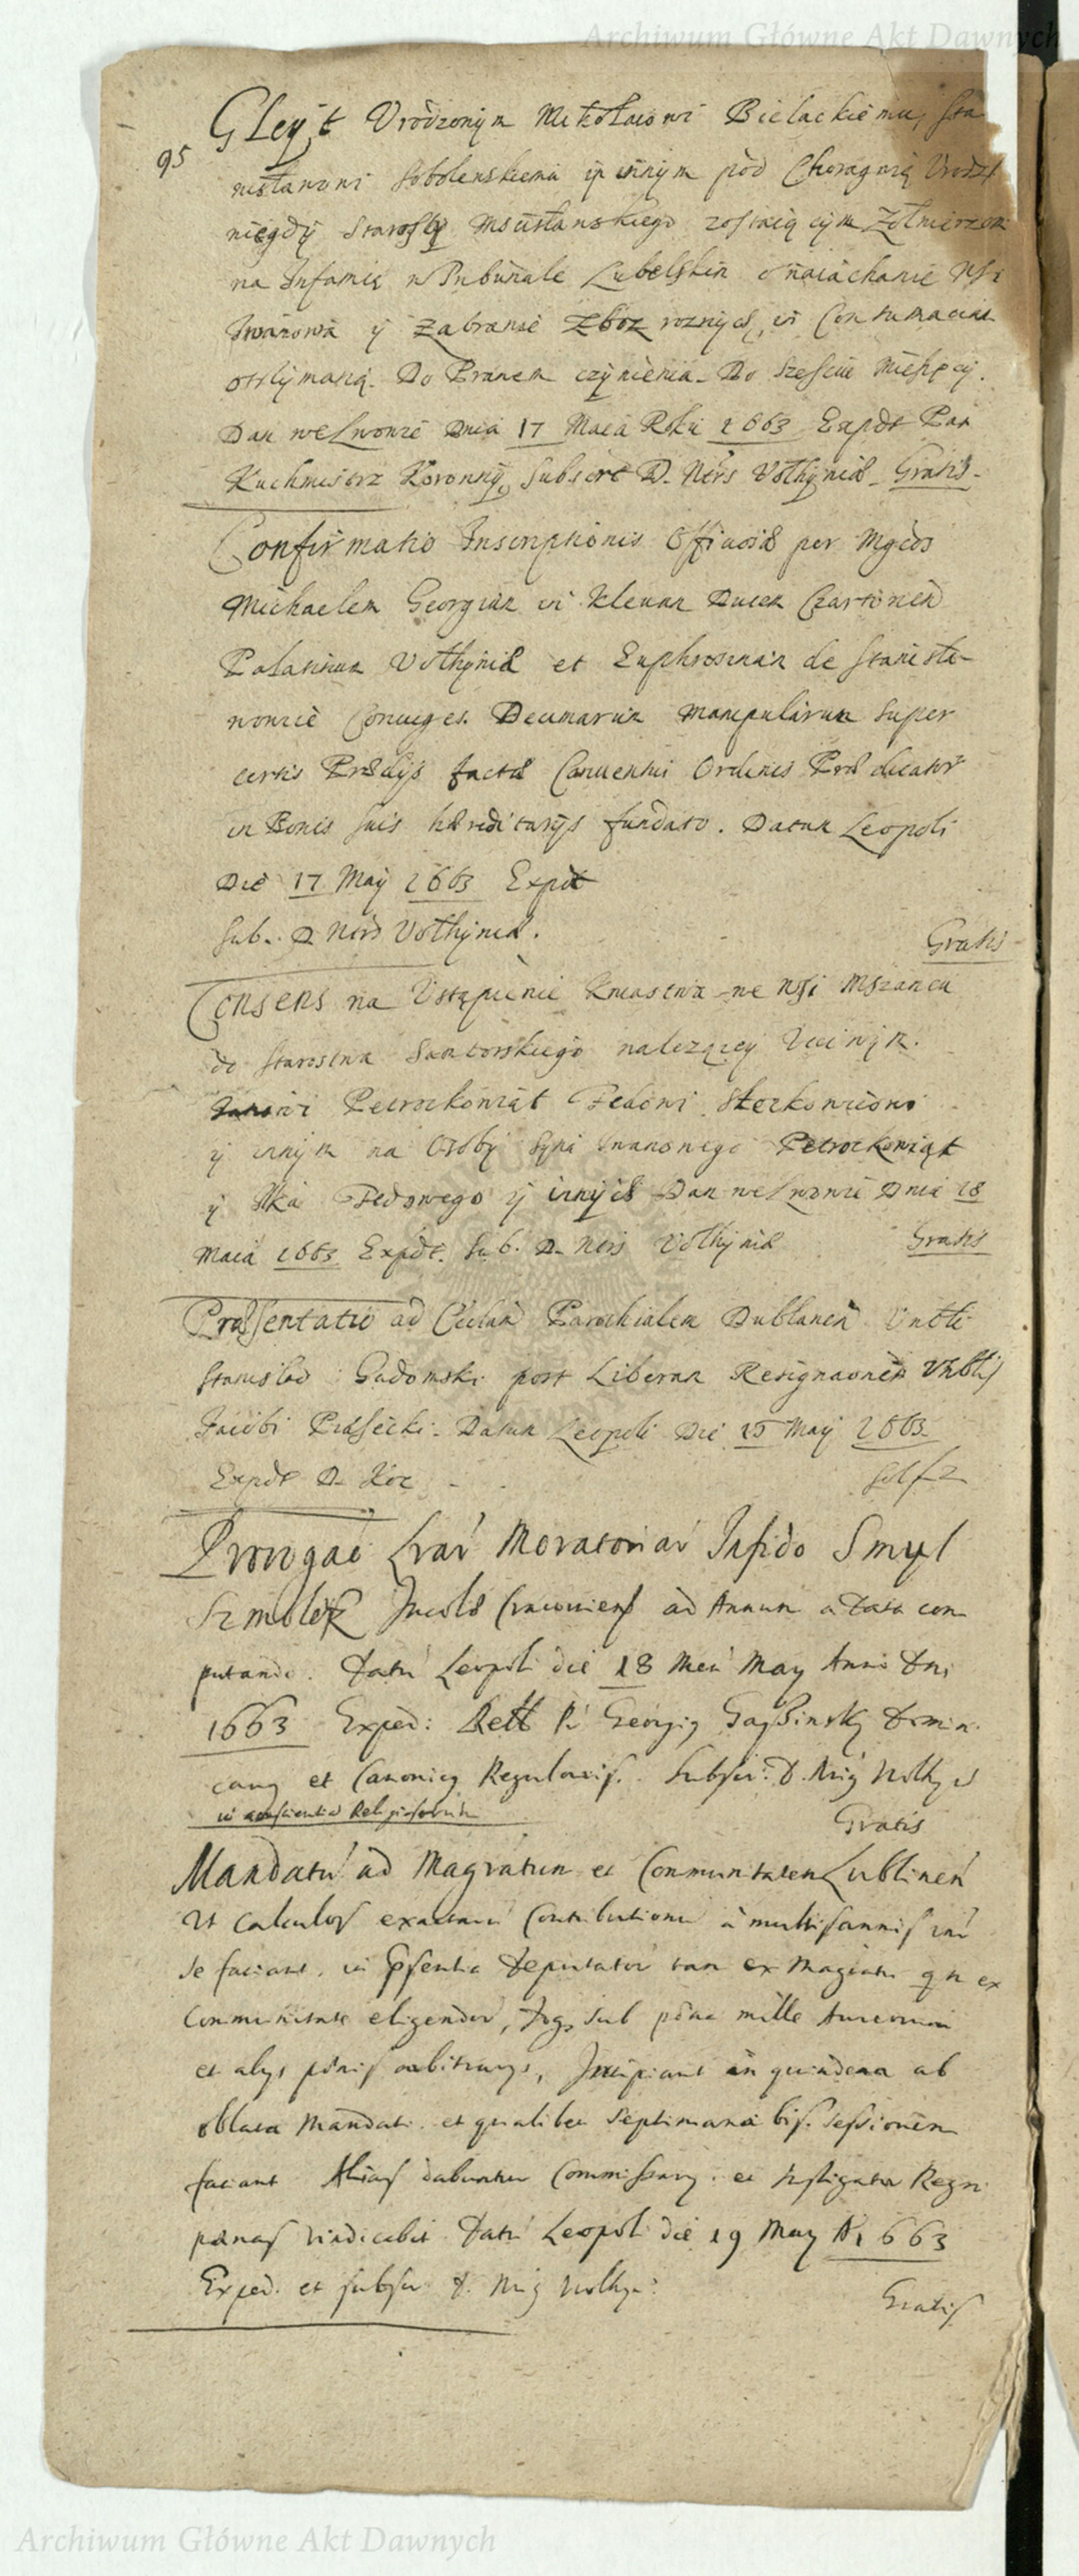 Archiwum Główne Akt Dawnych
Gleyt Vrodzonym Mikołaiowi Bielackiemu, Sta
95
nisławowi Sobolenskiemu ÿ innym pod Chorągwią Vrodz
niegdÿ StarostÿMscisławskiego zostaiącÿm Zołnierzom
na Infamię w Tribunale Lubelskim o naiachanie Wsi
Iwanowa ÿ Zabranie Zboz roznÿch, in Contumaciam
otrzÿmaną. Do Prawem czÿnienia. Do Szesciu Miesięcÿ.
Dan we Lwowie Dnia 17 Maia Roku 1663 Expdt Pan
Kuchmistrz Koronnÿ, Subscrt D. Nörs Vołhÿniæ. Gratis.
Confirmatio Inscriptionis Offiuosæ per Mgcos
Michaelem Georgium in Klewan Ducem Czartorien
Palatinum Vołhÿniæ et Euphrosinam de Stanisła
wowic Coniuges. Decimarum manipularum super
certis Prædÿs factæ Conuentui Ordinis Prædicator
in Bonis suis hæreditarÿs fundato. Datum Leopoli
Die 17 Maÿ 1663 Expdt
Sub. D Nörs Vołhÿniæ.
Gratis
Consens na Vstąpienie Kniastwa we Wsi Mszancu
do Starostwa Samborskiego nalezącеÿ Vcciwÿm.
Petrÿckowiąt Fedowi Steckowiczowi
ÿ innÿm na Osobÿ Sÿna Iwanowego Petrÿckowiąt
ÿ Ilka Fedowego ÿ innÿch Dan we Lwowie Dnia 18
Maia 1663 Expdt. Sub. D. Nörs Vołhÿniæ Gratis
Præsentatio ad Ccclam Parochialem Dublanen Vntli
Stanislao Gadomski post Liberam Resignaonem Vnblis
Jacobi Piasecki. Datum Leopoli Die 15 Maÿ 1663.
Expdt D. Koc
Sol f 2
Prorogao Lrar Moratoriar Infido Smyl
Szmolek Incolæ Cracouiens ad Annum a data com
putando. Datu Leopoli die 18 Men May Anno Dni
1663 Exped: Rett P. Georgiq Domin
canq et Canonicq Regularis. Subscr: D. Wolhyn
in conscientia Religiosorum
Gratis
Mandatu ad Magratum et Communitatem Lublinen
Vt calculos exactaru Contributionu a multis annis int
se faciant, in psentia deputator tam ex Magratu qm ex
Communitate eligendor, sub pœna mille Aureorum
et alys pœnis arbitrarys, Incipiant in quindena ab
oblata Mandati et qualibet Septimana bis sessionem
faciant Alias dabuntur Commissary. et Instigator Regni
pænas vindicabit Datu Leopoli die 19 May A 1663
Exped. et subscr D. Wolhyn:
Gratis
Archiwum Główne Akt Dawnych